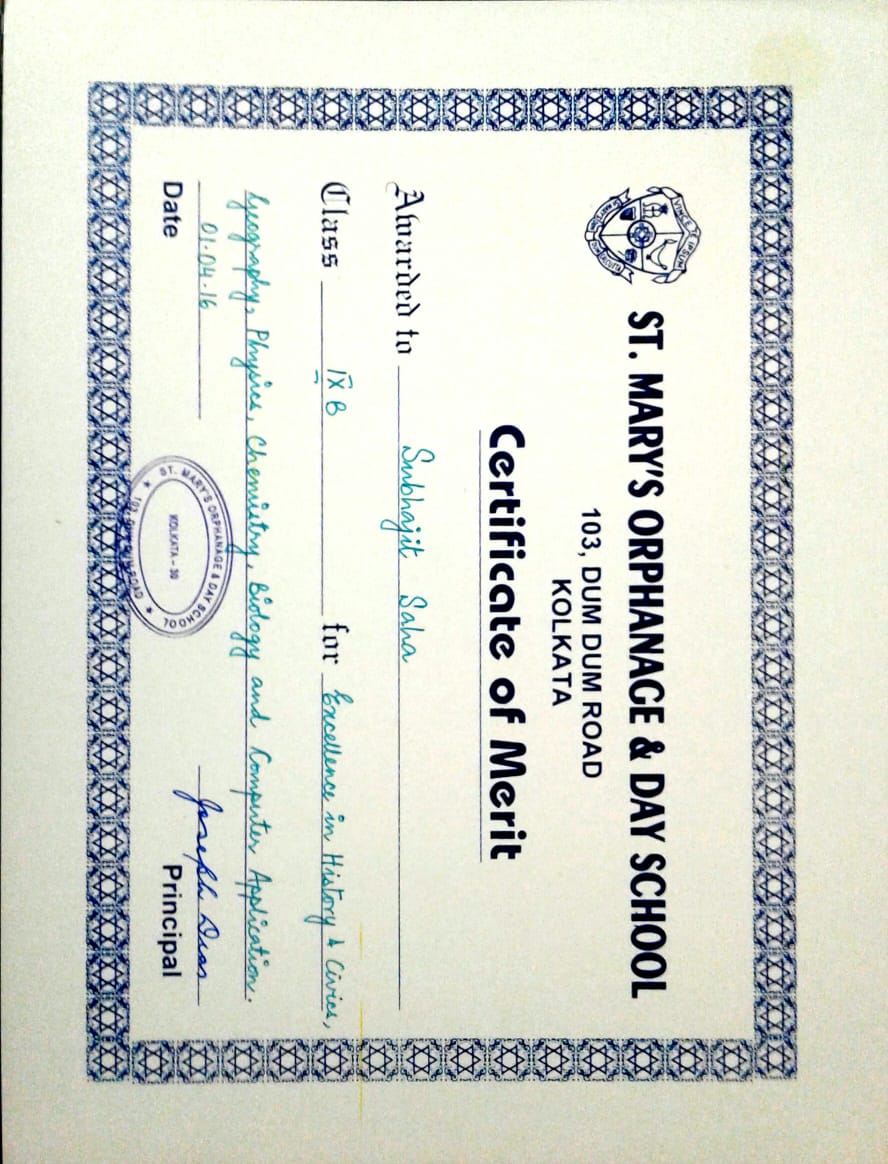 VINCE TE IPSUM
ST. MARY'S ORPHANAGE & DAY SCHOOL
103, DUM DUM ROAD
KOLKATA
Certificate of Merit
Awarded to Subhajit Saha
Class IX B for Excellence in History & Civics,
Geography, Physics, Chemistry, Biology and Computer Application.
01-04-16 Joseph Dias
Date Principal
ST. MARY'S ORPHANAGE & DAY SCHOOL
KOLKATA - 30
103, DUM DUM ROAD